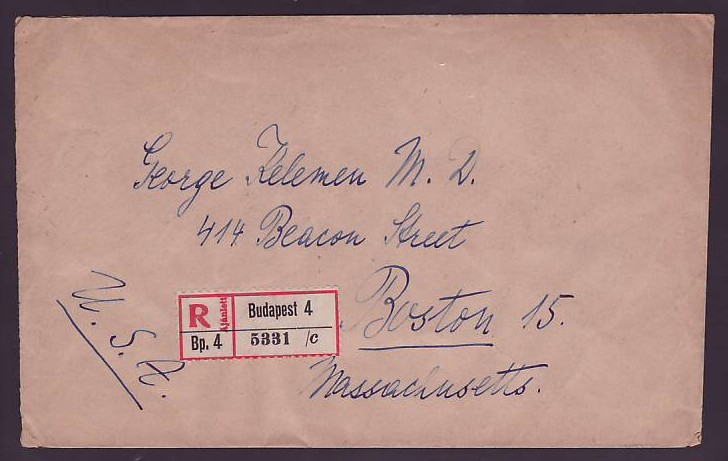 George Kelemen M. D.
414 Beacon Street
Boston 15.
Massachusetts.
U. S. A.
R
Ajánlott
Budapest 4
Bp. 4
5331 /c